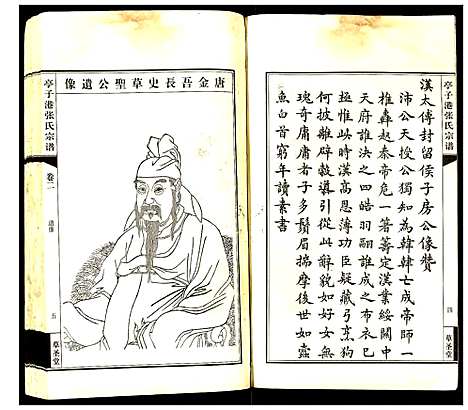 亭子港张氏宗谱
四
草圣堂
漢太傅封留侯子房公像贊
沛公天授公獨知為韓韓亡成帝師一
椎轟起秦帝危一著籌定漢業綏關中
天府誰決之四皓羽翮誰成之布衣已
極惟此時漢高恩薄功臣疑藏弓烹狗
何披辟穀導引從此辭貌如婦人狀
瑰奇奇者子多鬚眉揣摩後世如蠹
魚白首窮年讀素書
唐金吾長史草聖公遺像
亭子港张氏宗谱
卷二
遗像
五
草圣堂